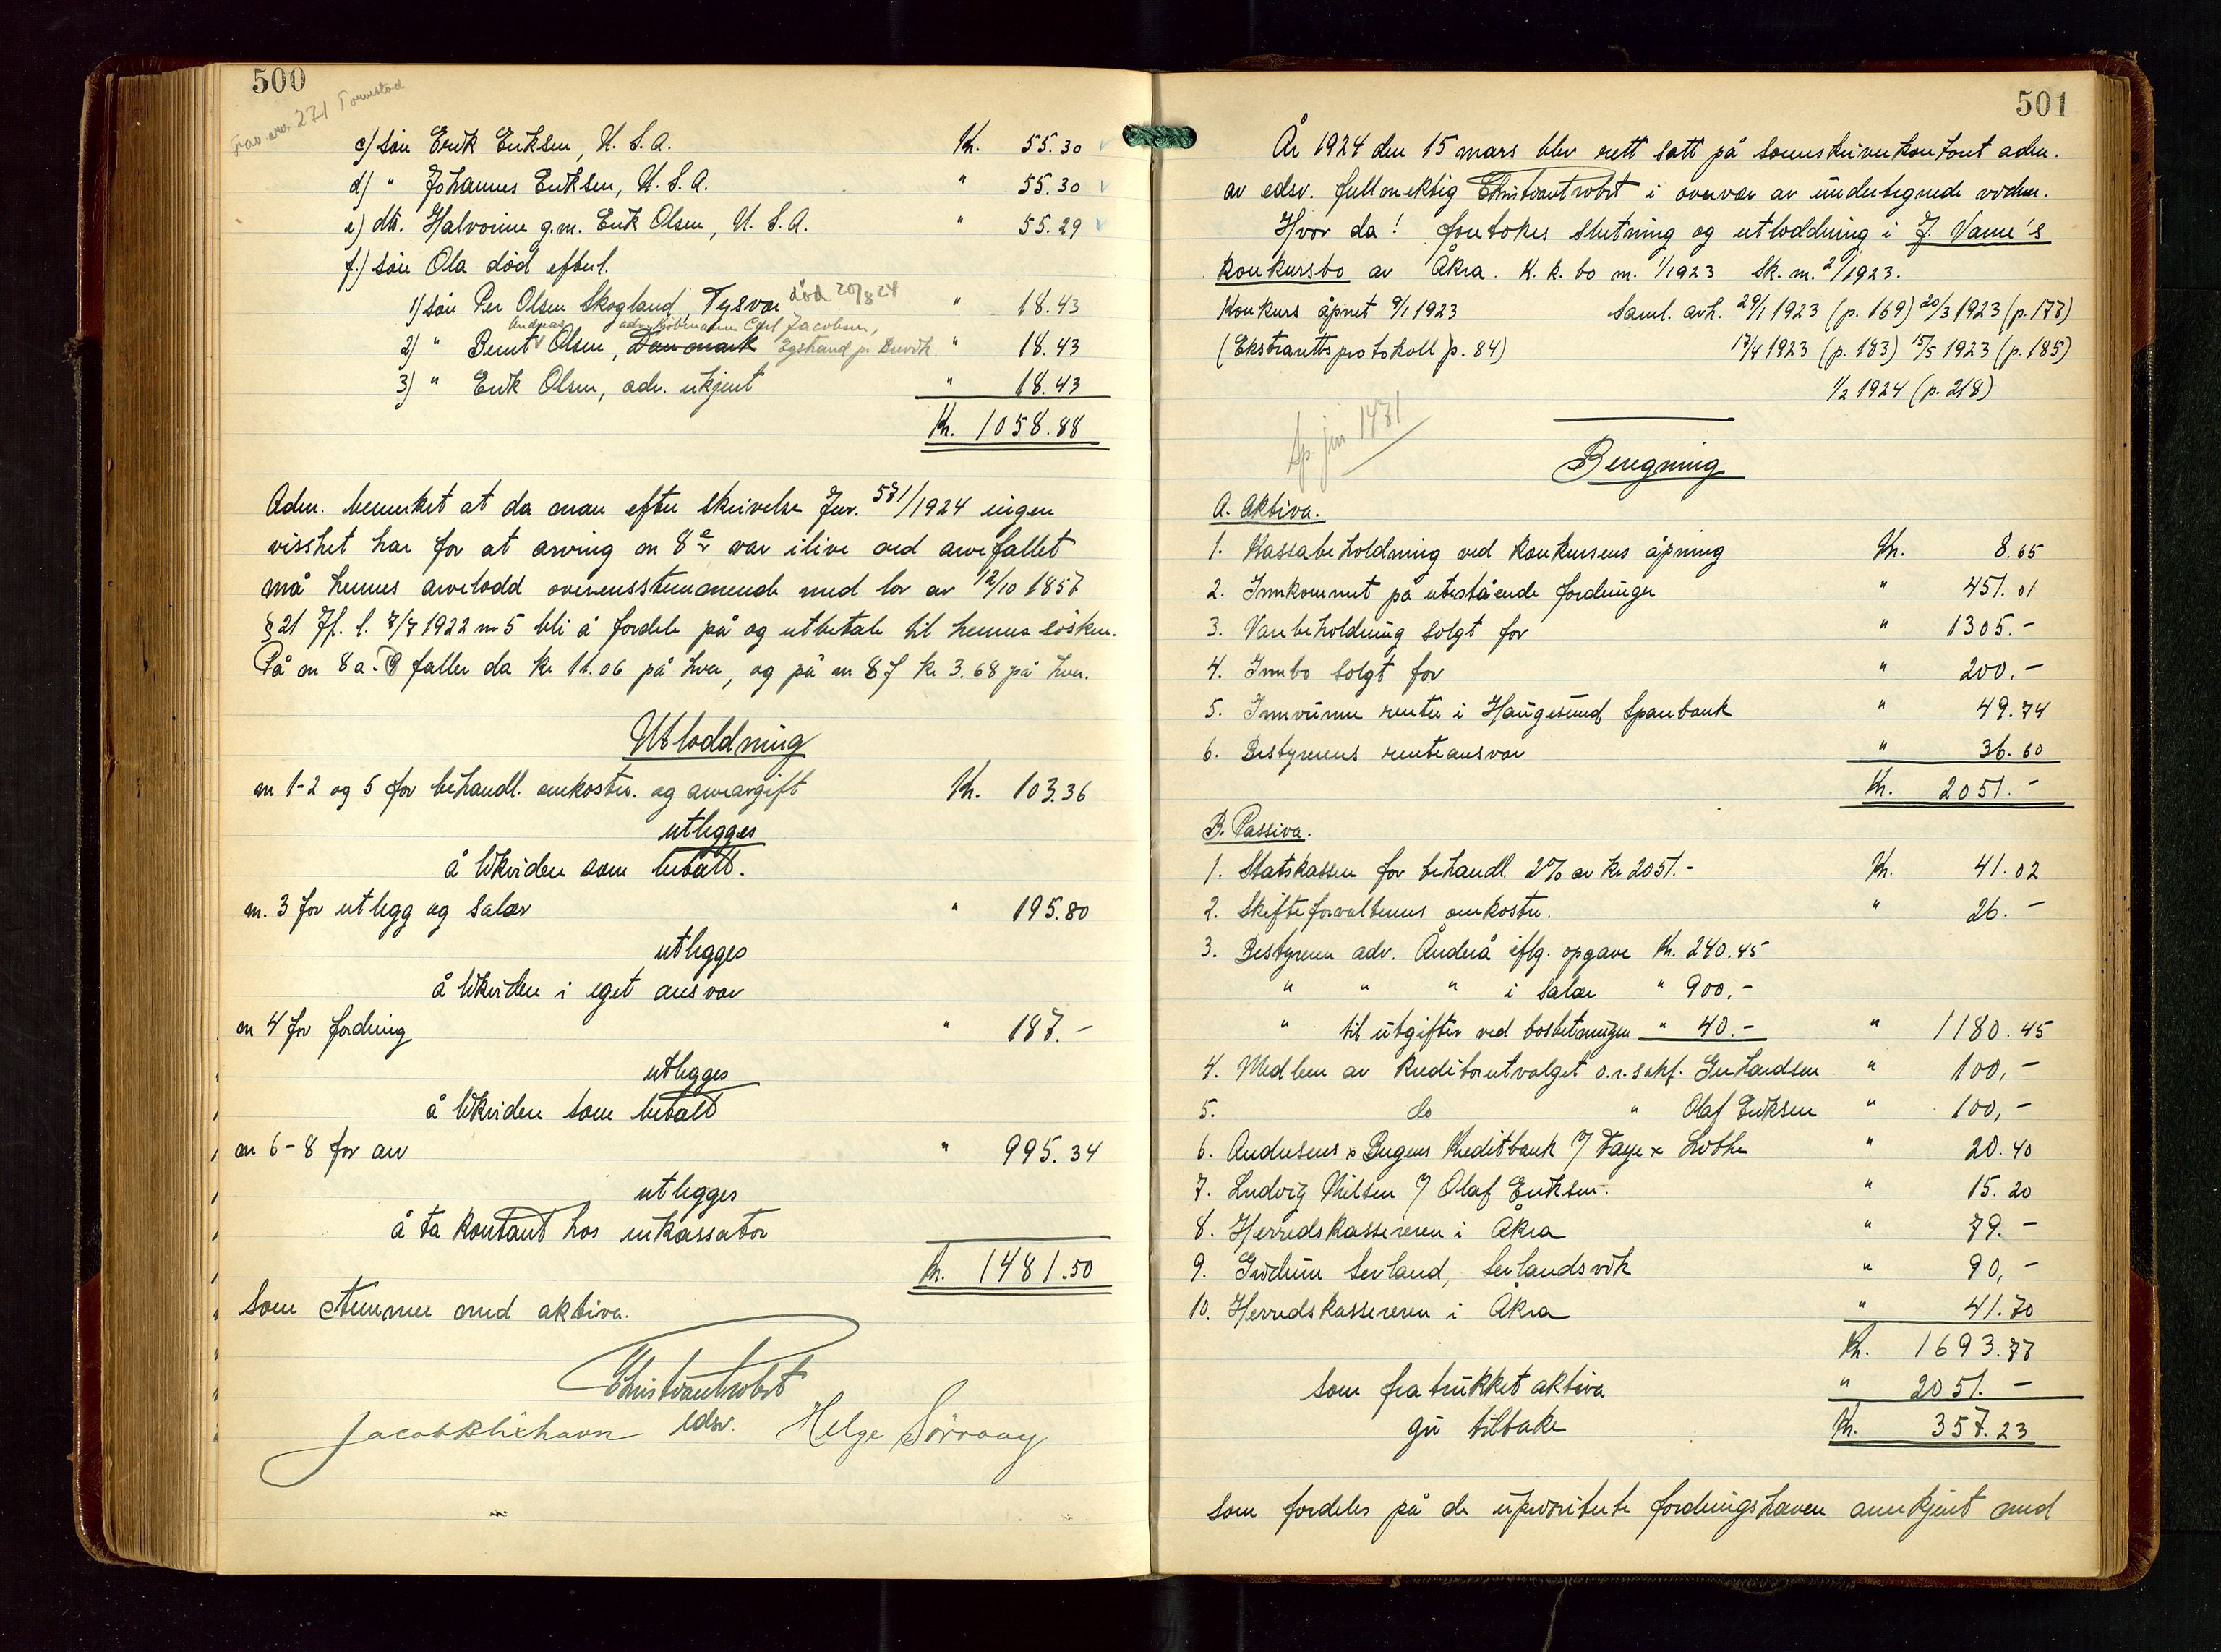 500
271 Torvestad
c) sön Erik Eriksen, U. S. A. Kr. 55.30
d) " Johannes Eriksen, U. S. A. " 55.30
e) dtr. Halvorine g.m. Erik Olsen, U. S. A. " 55.29
f.) sön Ola död efterl.
1) sön Per Olsen Skogland, Tysvær död 20/8 24 " 18.43
Andreas adr. Kjöbmann Carl Jacobsen,
2) " Bernt Olsen, Danmark Egstrand pr. Brevik " 18.43
3) " Erik Olsen, adr. ukjent " 18.43
Kr. 1058.88
Adm. bemerket at da man efter skrivelse Jnr. 571/1924 ingen
visshet har for at arving nr 8 e var ilive ved arvefallet
må hennes arvelodd overensstemmende med lov av 12/10 1857
§ 21 jf. l. 7/7 1922 nr 5 bli å fordele på og utbetale til hennes sösken.
På nr 8 a-d faller da kr 11.06 på hver, og på nr 8 f kr 3.68 på hver.
Utloddning
nr 1-2 og 5 for behandl. omkostn. og arveavgift Kr. 103.36
utlegges
å likviden som betalt.
nr. 3 for utlegg og salær " 195.80
utlegges
å likviden i eget ansvar
nr 4 for fordring " 187.-
utlegges
å likviden som betalt
nr 6-8 for arv " 995.34
utlegges
å ta kontant hos inkassator
Kr. 1481.50
som stemmer med aktiva.
Christiantrobst
edsv.
Jacob Klixhavn Helge Sörvaag
501
År 1924 den 15 mars blev rett satt på sorenskriverkontoret adm.
av edsv. fullmektig Christiantrobst i overvær av undertegnede vidner.
Hvor da! foretokes slutning og utloddning i J. Varne's
konkursbo av Åkra. K. k. bo nr. 1/1923 Sk. nr. 2/1923.
Konkurs åpnet 9/1 1923 Saml. avh. 29/1 1923 (p. 169) 20/3 1923 (p. 177)
(Ekstrarettsprotokoll p. 84) 17/4 1923 (p. 183) 15/5 1923 (p. 185)
1/2 1924 (p. 218)
1471
Beregning
A. Aktiva.
1. Kassabeholdning ved konkursens åpning Kr. 8.65
2. Innkommet på utestående fordringer " 451.01
3. Varebeholdning solgt for " 1305.-
4. Innbo solgt for " 200.-
5. Innvunne renter i Haugesund Sparebank " 49.74
6. Bestyrerens renteansvar " 36.60
Kr. 2051.-
B. Passiva.
1. Statskassen for behandl. 2% av kr 2051.- Kr. 41.02
2. Skifteforvalterens omkostn. " 26.-
3. Bestyreren adv. Änderå iflg. opgave Kr. 240.45
" " " i salær " 900.-
" til utgifter ved boslutningen " 40.- " 1180.45
4. Medlem av kreditorutvalget o.r.sakf. Gerhardsen " 100,-
5. do " Olaf Eriksen " 100,-
6. Andresens & Bergens Kreditbank v/ Faye & Lothe " 20.40
7. Ludvig Nilsen v/ Olaf Eriksen. " 15.20
8. Herredskassereren i Åkra " 79.-
9. Gudrun Sevland, Sevlandsvik " 90,-
10. Herredskassereren i Åkra " 41.70
Kr. 1693.77
som fratrukket aktiva " 2051.-
gir tilbake Kr. 357.23
som fordeles på de uprioriterte fordringshaver anerkjent med